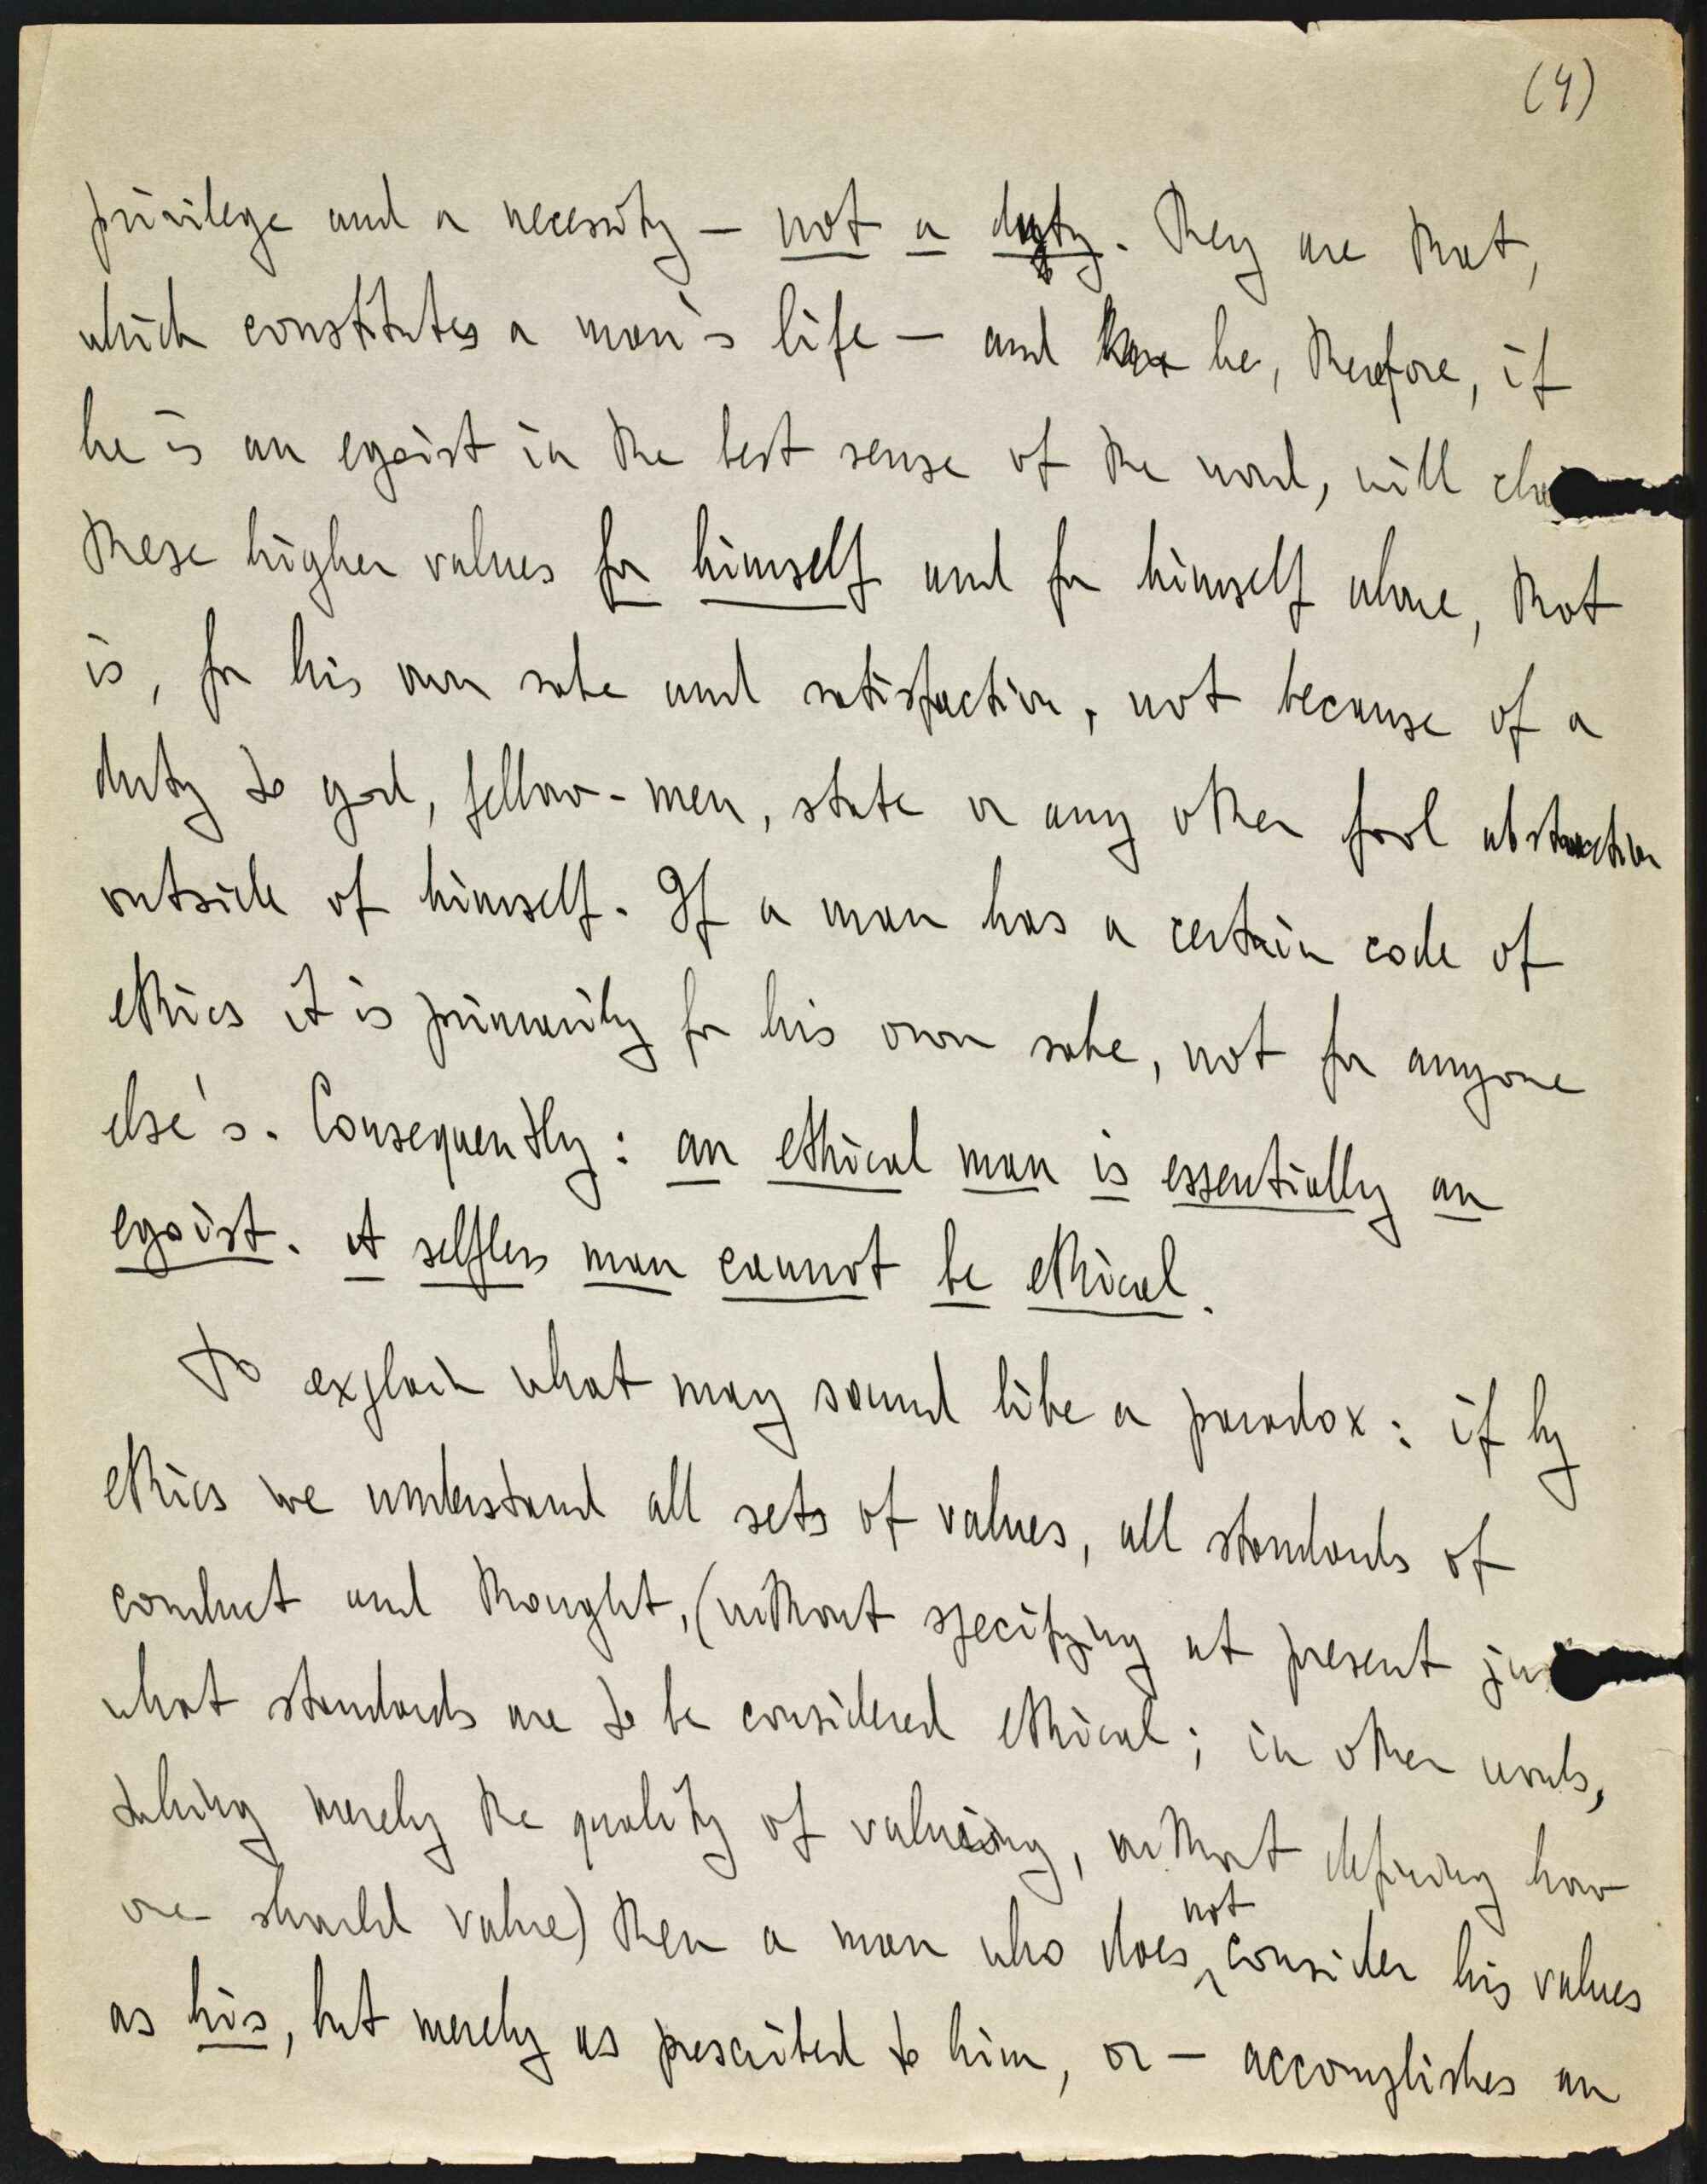 (4)
privilege and a necessity — not a duty. They are that,
which constitutes a man's life — and he, therefore, if
he is an egoist in the best sense of the word, will
these higher values for himself and for himself alone, that
is, for his own sake and satisfaction, not because of a
duty to god, fellow-men, state or any other fool abstraction
outside of himself. If a man has a certain code of
ethics it is primarily for his own sake, not for anyone
else's. Consequently: an ethical man is essentially an
egoist. A selfless man cannot be ethical.
To explain what may sound like a paradox: if by
ethics we understand all sets of values, all standards of
conduct and thought, (without specifying at present
what standards are to be considered ethical; in other words,
taking merely the quality of valuing, without defining how
one should value) then a man who does not consider his values
as his, but merely as prescribed to him, or — accomplishes an